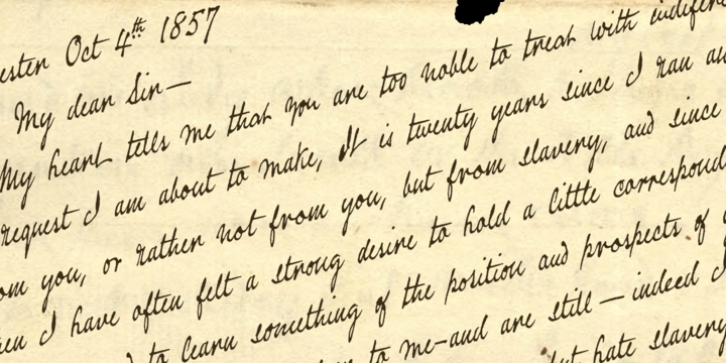 Oct 4th 1857
My dear Sir—
My heart tells me that you are too noble to treat with
request I am about to make, It is twenty years since I ran
you, or rather not from you, but from slavery, and since
I have often felt a strong desire to hold a little
to learn something of the position and prospects of
to me—and are still—indeed I
but hate slavery